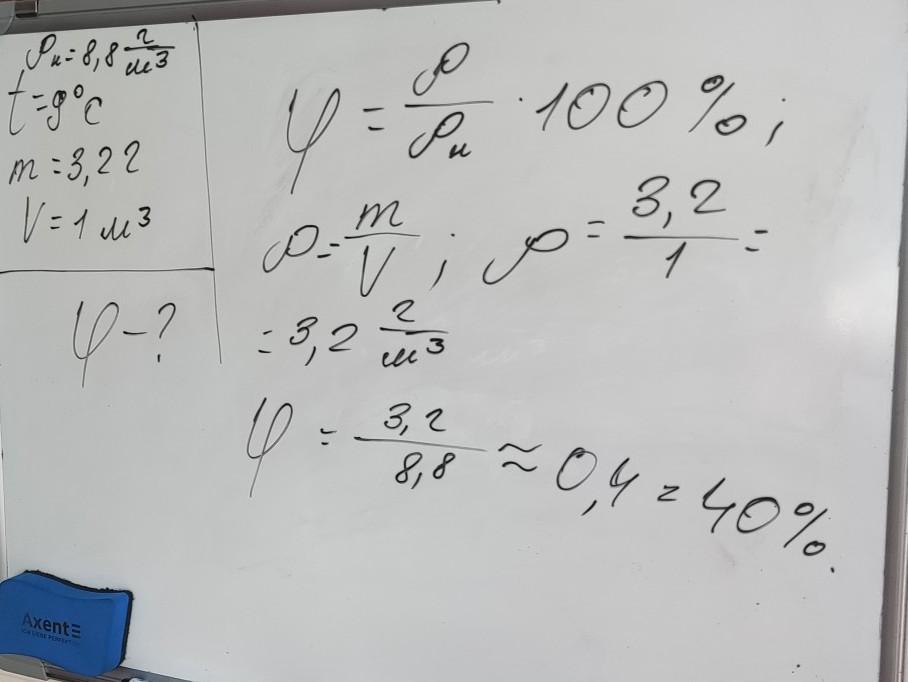 ρн = 8,8 г/м³
t = 9°C
m = 3,2 г
V = 1 м³
φ - ?
φ = ρ/ρн · 100 %;
ρ = m/V ; ρ = 3,2/1 =
= 3,2 г/м³
φ = 3,2/8,8 ≈ 0,4 = 40%.
Axent